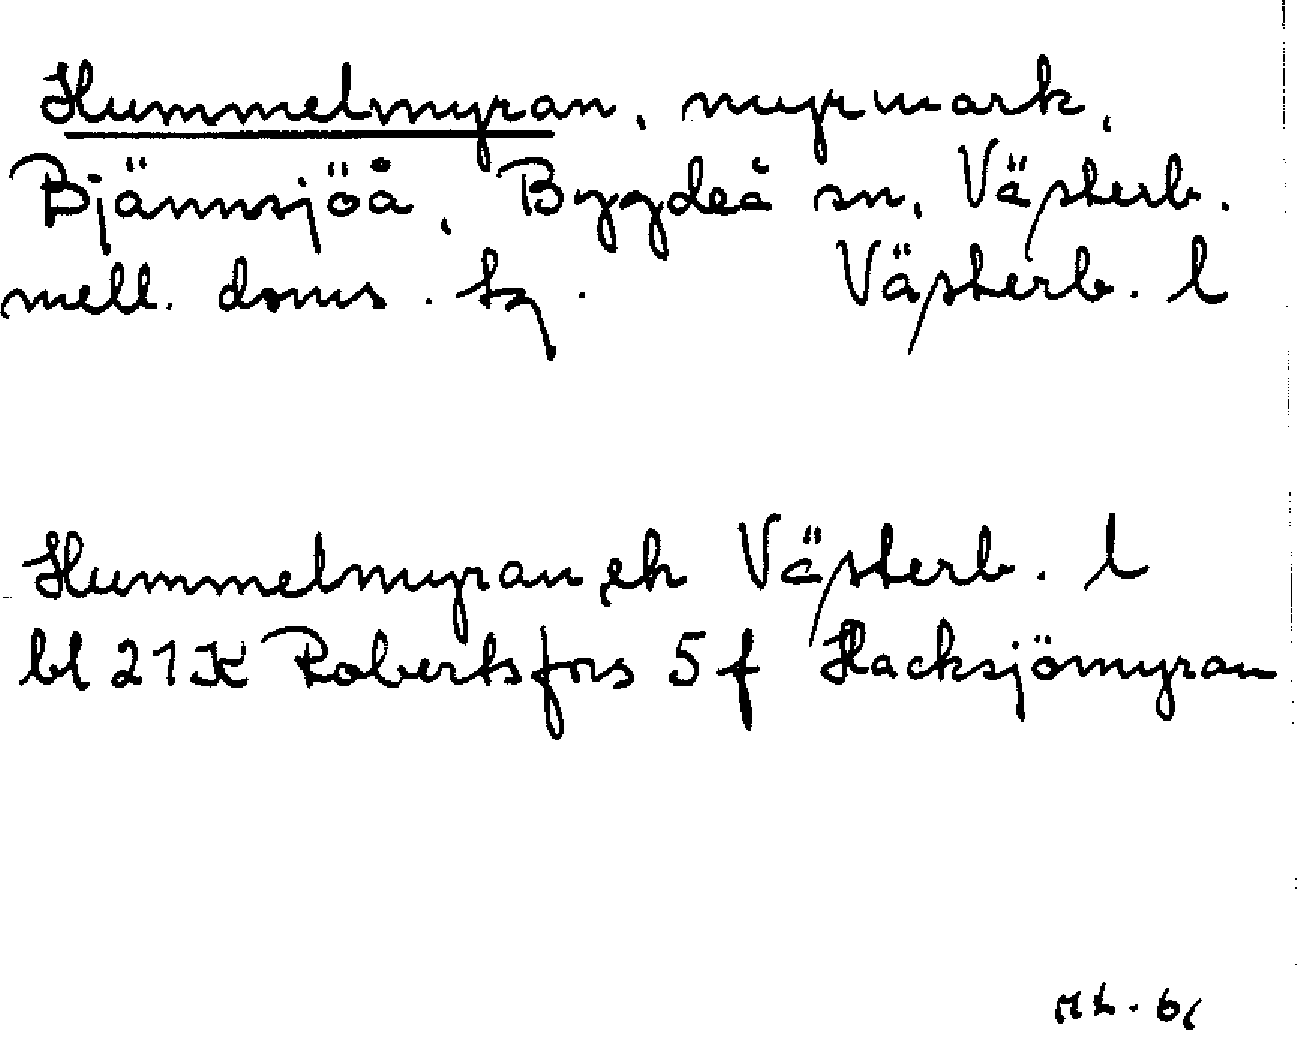 Hummelmyran, myrmark,
Bjännsjöå, Bygdeå sn, Västerb.
mell. doms. tg. Västerb. l
Hummelmyran, ek Västerb. l
bl 21K Robertsfors 5 f Hacksjömyran